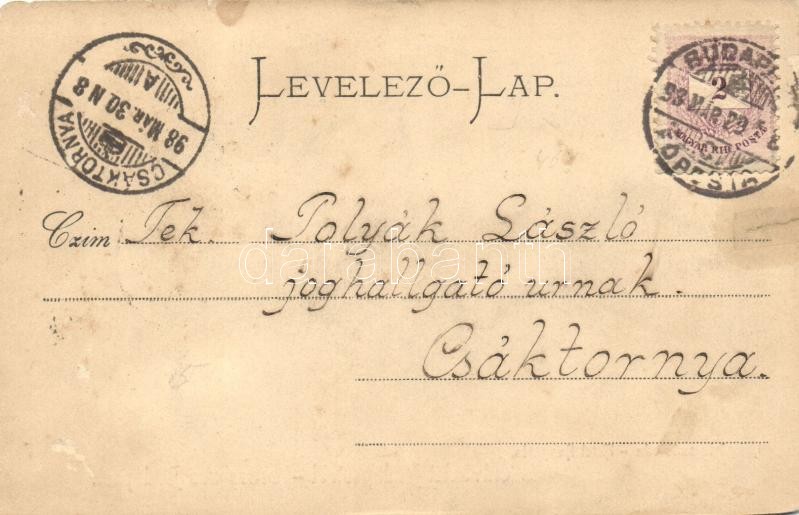 LEVELEZŐ-LAP.
CSÁKTORNYA
98 MÁR. 30. N 8
A
BUDAPE
98 MÁR 29
FŐPOSTA
2
MAGYAR KIR. POSTA
Czim Tek. Polyák László
joghallgató urnak.
Csáktornya.
darabanth